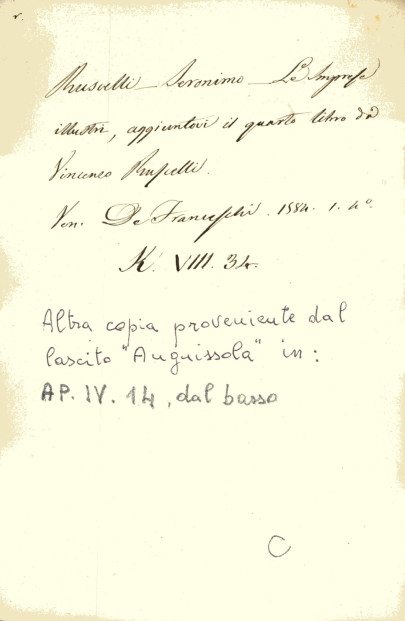 Ruscelli Jeronimo Le Imprese
illustri, aggiuntovi il quarto libro da
Vincenzo Ruscelli.
Ven. De Franceschi. 1584. 1. 4°.
K. VIII. 34.
Altra copia proveniente dal
lascito "Anguissola" in:
AP. IV. 14, dal basso
C